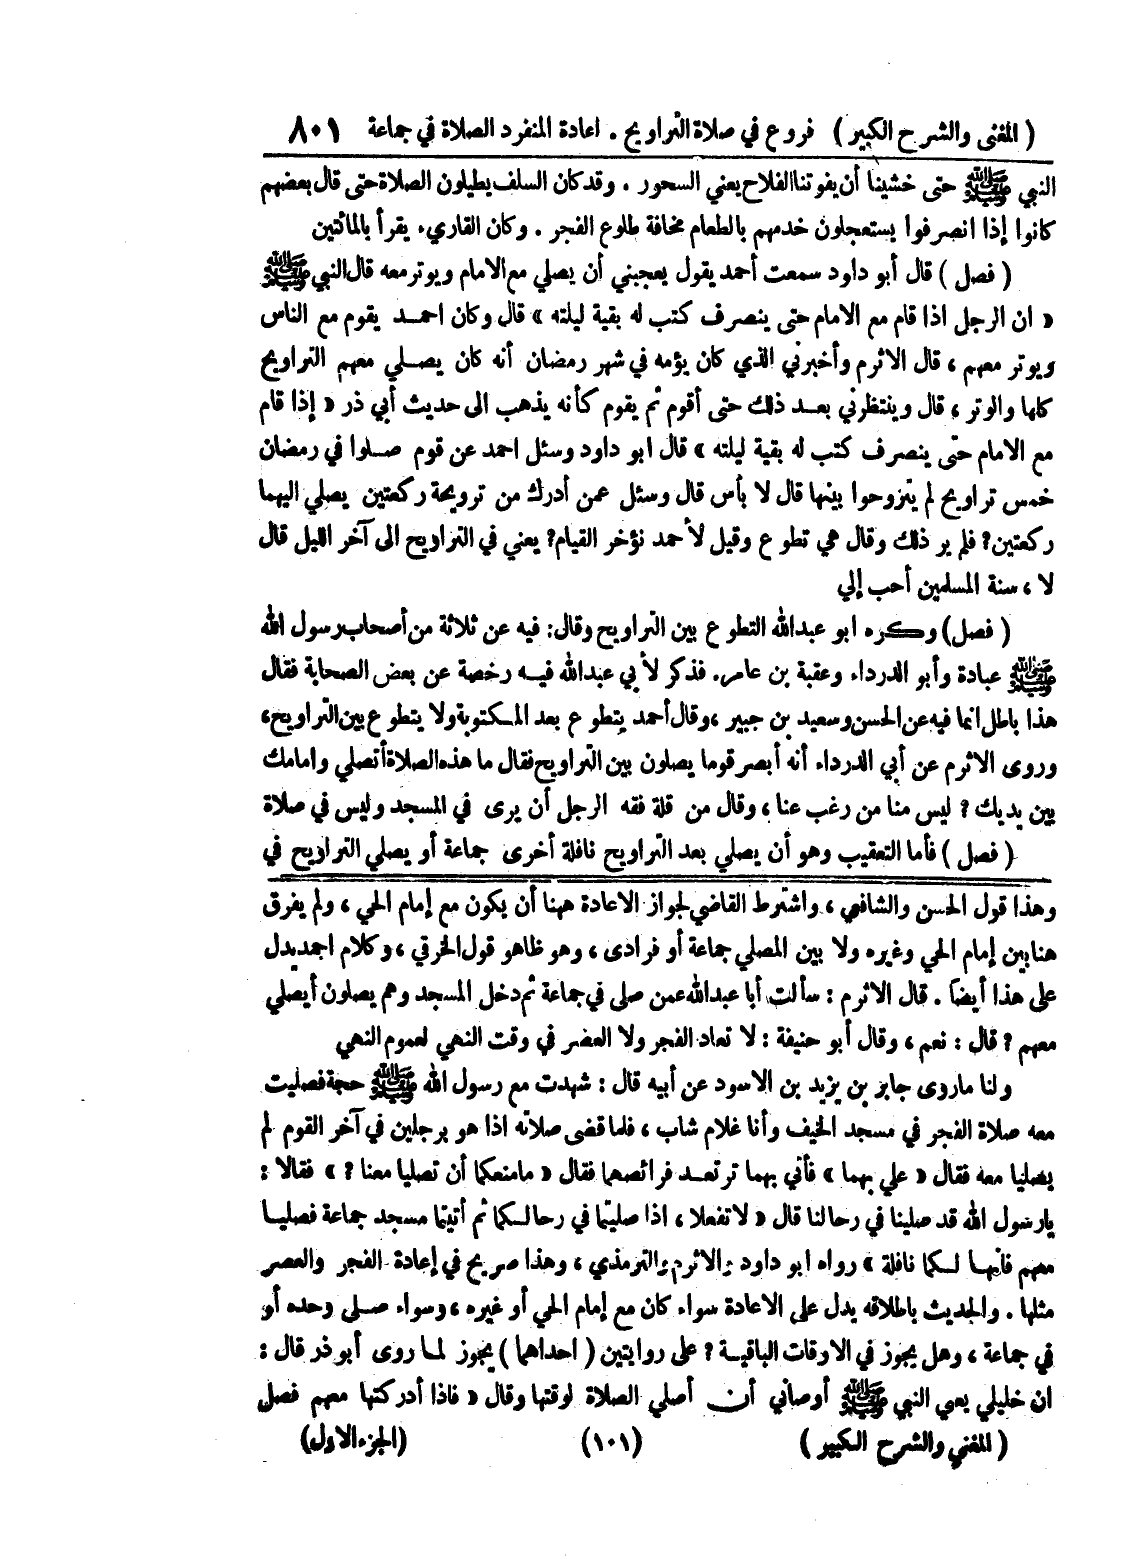 ( المغني والشرح الكبير ) فروع في صلاة التراويح . اعادة المنفرد الصلاة في جماعة ٨٠١
النبي ﷺ حتى خشينا أن يفوتنا الفلاح يعني السحور . وقد كان السلف يطيلون الصلاة حتى قال بعضهم
كانوا إذا انصرفوا يستعجلون خدمهم بالطعام مخافة طلوع الفجر . وكان القاريء يقرأ بالمائتين
( فصل ) قال أبو داود سمعت أحمد يقول يعجبني أن يصلي مع الامام ويوتر معه قال النبي ﷺ
« ان الرجل اذا قام مع الامام حتى ينصرف كتب له بقية ليلته » قال وكان احمد يقوم مع الناس
ويوتر معهم ، قال الاثرم وأخبرني الذي كان يؤمه في شهر رمضان أنه كان يصلي معهم التراويح
كلها والوتر ، قال وينتظرني بعد ذلك حتى أقوم ثم يقوم كأنه يذهب الى حديث أبي ذر « إذا قام
مع الامام حتى ينصرف كتب له بقية ليلته » قال ابو داود وسئل احمد عن قوم صلوا في رمضان
خمس تراويح لم يتروحوا بينها قال لا بأس قال وسئل عمن أدرك من ترويحة ركعتين يصلي اليهما
ركعتين؟ فلم ير ذلك وقال هي تطوع وقيل لأحمد نؤخر القيام؟ يعني في التراويح الى آخر الليل قال
لا ، سنة المسلمين أحب إلي
( فصل) وكره ابو عبدالله التطوع بين التراويح وقال: فيه عن ثلاثة من أصحاب رسول الله
ﷺ عبادة وأبو الدرداء وعقبة بن عامر. فذكر لأبي عبدالله فيه رخصة عن بعض الصحابة فقال
هذا باطل انما فيه عن الحسن وسعيد بن جبير ، وقال أحمد يتطوع بعد المكتوبة ولا يتطوع بين التراويح،
وروى الاثرم عن أبي الدرداء أنه أبصر قوما يصلون بين التراويح فقال ما هذه الصلاة أتصلي وامامك
بين يديك ؟ ليس منا من رغب عنا ، وقال من قلة فقه الرجل أن يرى في المسجد وليس في صلاة
( فصل ) فأما التعقيب وهو أن يصلي بعد التراويح نافلة أخرى جماعة أو يصلي التراويح في
وهذا قول الحسن والشافعي ، واشترط القاضي لجواز الاعادة ههنا أن يكون مع إمام الحي ، ولم يفرق
هنا بين إمام الحي وغيره ولا بين المصلي جماعة أو فرادى ، وهو ظاهر قول الخرقي ، وكلام احمد يدل
على هذا أيضاً . قال الاثرم : سألت أبا عبدالله عمن صلى في جماعة ثم دخل المسجد وهم يصلون أيصلي
معهم ؟ قال : نعم ، وقال أبو حنيفة : لا تعاد الفجر ولا العصر في وقت النهي لعموم النهي
ولنا ماروى جابر بن يزيد بن الاسود عن أبيه قال : شهدت مع رسول الله ﷺ حجة فصليت
معه صلاة الفجر في مسجد الخيف وأنا غلام شاب ، فلما قضى صلاته اذا هو برجلين في آخر القوم لم
يصليا معه فقال « علي بهما » فأتي بهما ترتعد فرائصهما فقال « مامنعكما أن تصليا معنا ؟ » فقالا :
يارسول الله قد صلينا في رحالنا قال « لا تفعلا ، اذا صليتما في رحالكما ثم أتيتما مسجد جماعة فصليا
معهم فانها لكما نافلة » رواه ابو داود والاثرم والترمذي ، وهذا صريح في إعادة الفجر والعصر
مثلها . والحديث باطلاقه يدل على الاعادة سواء كان مع إمام الحي أو غيره ، وسواء صلى وحده أو
في جماعة ، وهل يجوز في الاوقات الباقية ؟ على روايتين ( احداهما ) يجوز لما روى أبو ذر قال :
ان خليلي يعني النبي ﷺ أوصاني أن أصلي الصلاة لوقتها وقال « فاذا أدركتها معهم فصل
( المغني والشرح الكبير ) (١٠١) (الجزء الاول)